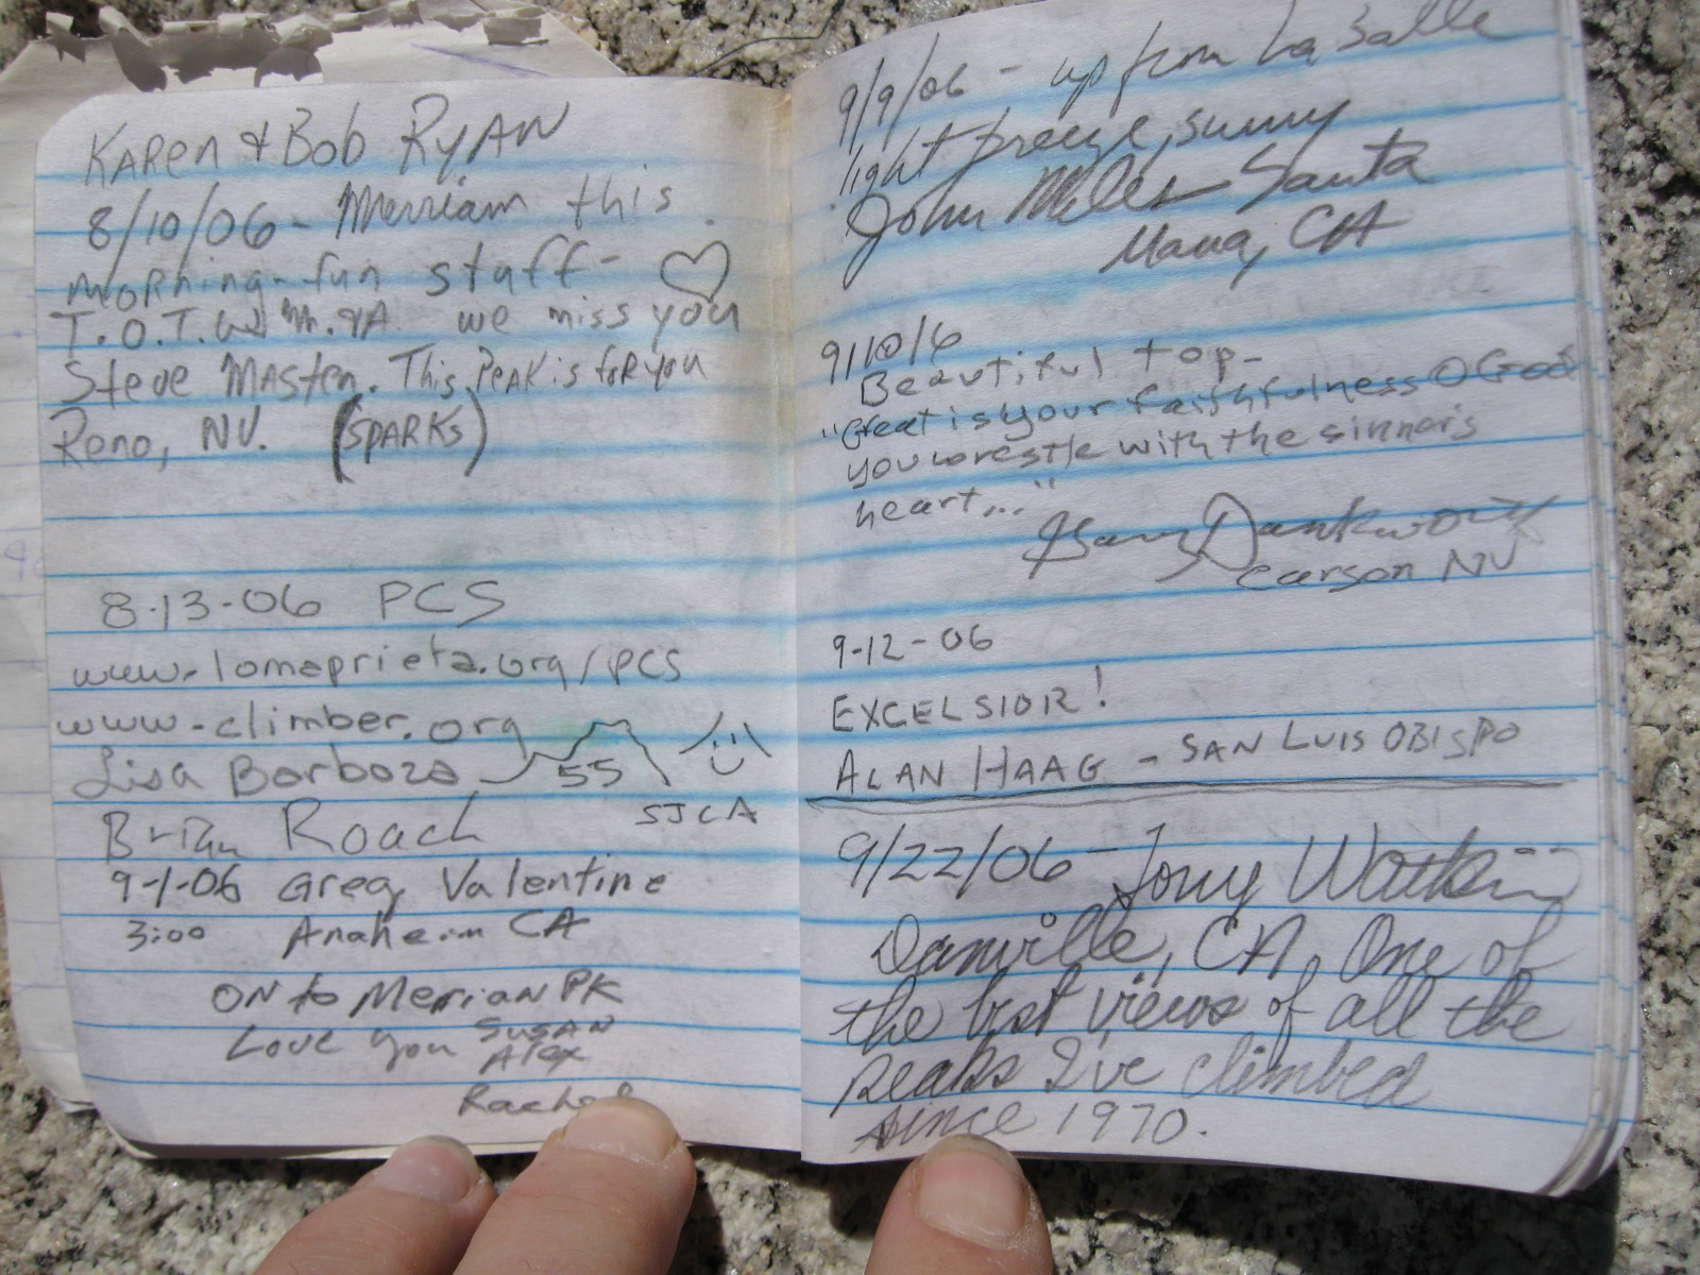 Karen & Bob Ryan
8/10/06 - Merriam this
morning - fun stuff -
T.O.T.W. we miss you
Steve Masten. This Peak is for you
Reno, NV. (SPARKS)
8-13-06 PCS
www.lomaprieta.org/PCS
www.climber.org
Lisa Barboza 55
SJCA
Brian Roach
9-1-06 Greg Valentine
3:00 Anaheim CA
ON to Merian PK
Love you Susan
Alex
Rachel
9/9/06 - up from La Salle
light breeze, sunny
John Miles Santa
Maria, CA
9/10/6
Beautiful top-
"Great is your faithfulness O God
you wrestle with the sinner's
heart..."
Gary Dankworth
Carson NV
9-12-06
EXCELSIOR!
ALAN HAAG - SAN LUIS OBISPO
9/22/06 - Tony Watkins
Danville, CA, One of
the best views of all the
peaks I've climbed
since 1970.